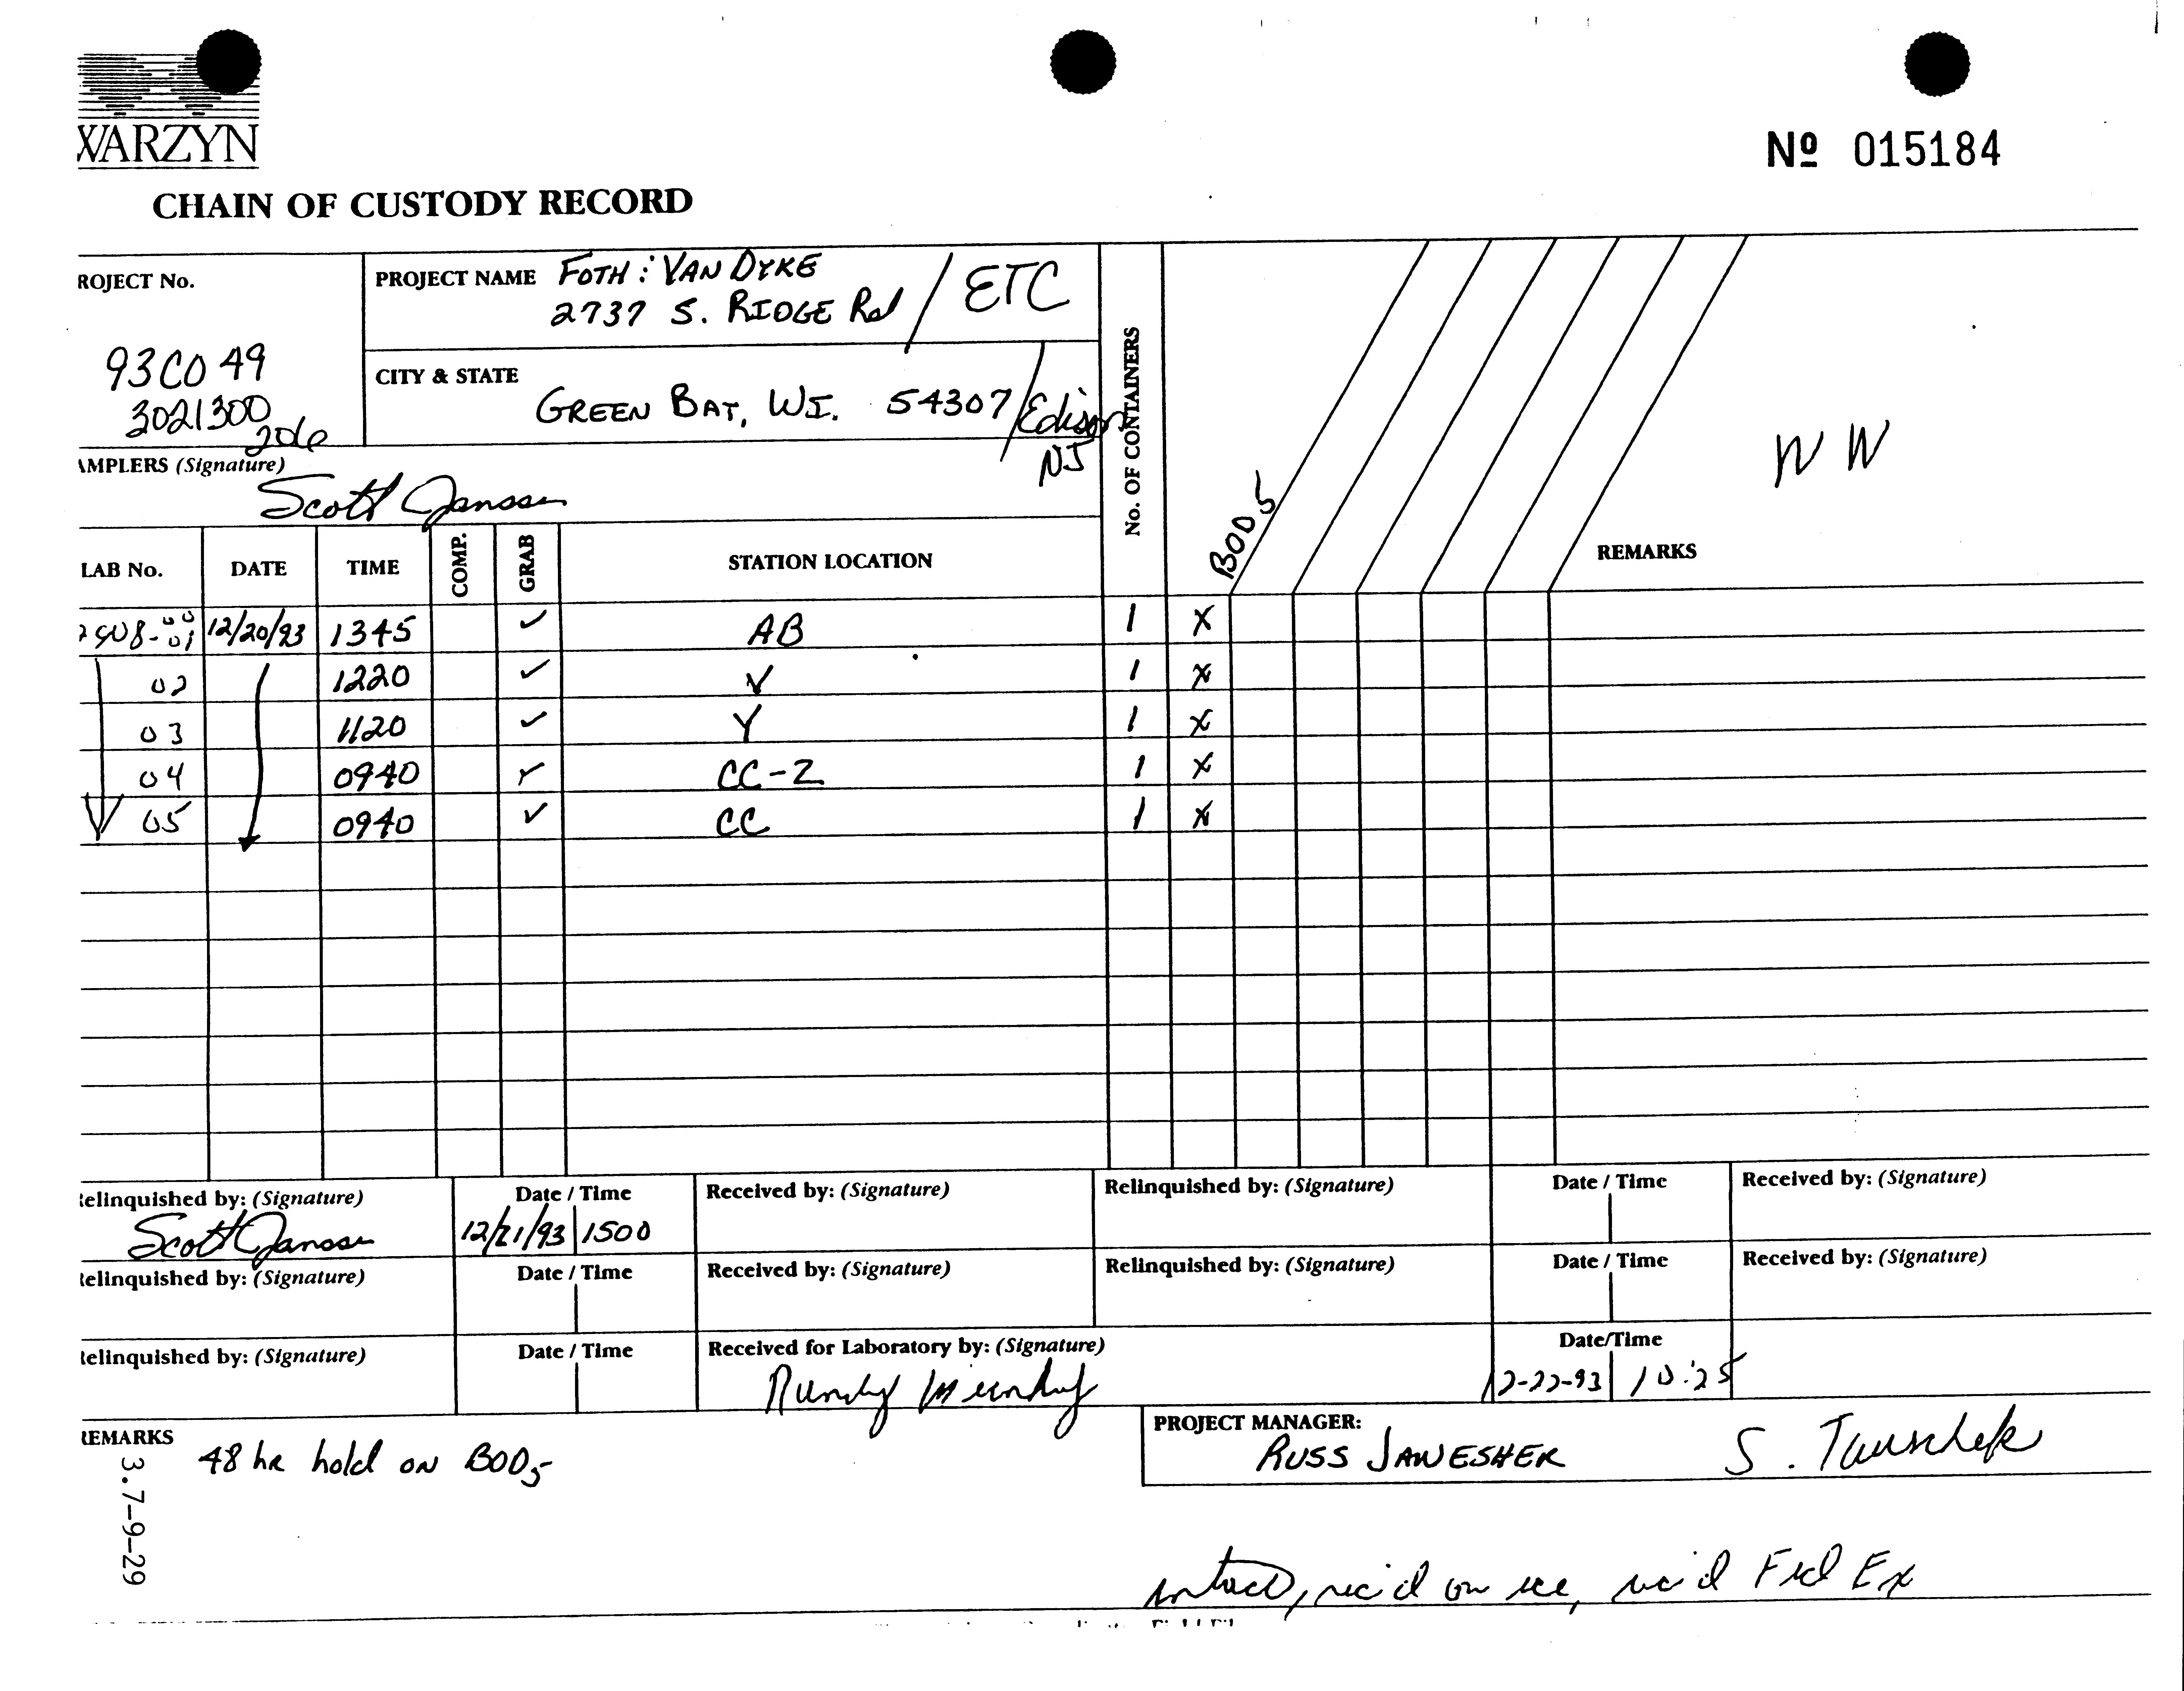 WARZYN
Nº 015184
CHAIN OF CUSTODY RECORD
ROJECT No.
93C049
3021300
206
PROJECT NAME FOTH : VAN DYKE
2737 S. RIDGE Rd / ETC
CITY & STATE
GREEN BAY, WI. 54307 / Edison
NJ
AMPLERS (Signature)
Scott Janssen
No. OF CONTAINERS
BOD5
W W
REMARKS
LAB No. DATE TIME COMP. GRAB STATION LOCATION
12/20/93 1345 ✓ AB 1 X
02 1220 ✓ V 1 X
03 1120 ✓ Y 1 X
04 0940 ✓ CC-2 1 X
05 0940 ✓ CC 1 X
Relinquished by: (Signature) Date / Time Received by: (Signature) Relinquished by: (Signature) Date / Time Received by: (Signature)
Scott Janssen 12/21/93 1500
Relinquished by: (Signature) Date / Time Received by: (Signature) Relinquished by: (Signature) Date / Time Received by: (Signature)
Relinquished by: (Signature) Date / Time Received for Laboratory by: (Signature) Date/Time
12-22-93 10:25
REMARKS
48 hr hold on BOD5
PROJECT MANAGER:
RUSS JANESHEK
3.7-9-29
intact, rec'd on ice, rec'd Fed Ex